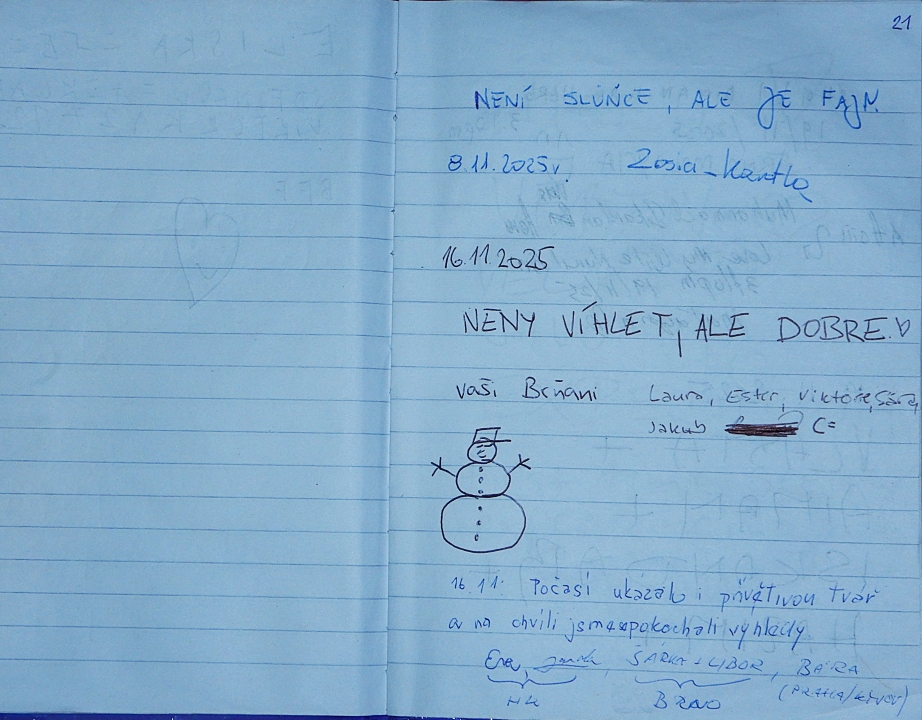 21
NENÍ SLUNCE, ALE JE FAJN.
8.11.2025r. Zosia
16.11.2025
NENY VÍHLET, ALE DOBRE.♡
vaši Brňani Laura, Ester, Viktorie, Sára,
Jakub C=
16.11. Počasí ukázalo i přívětivou tvář
a na chvíli jsme pokochali výhledy
Eva, ŠÁRKA + LIBOR, BÁRA
HK BRNO (PRAHA/